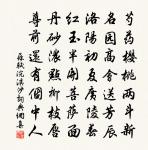 芍药櫻桃兩斗新
名園高會送芳辰
洛陽初夏廣陵春
紅玉半開菩薩面
丹砂濃點柳枝唇
尊前還有個中人
蘇軾浣溪沙詞典網集